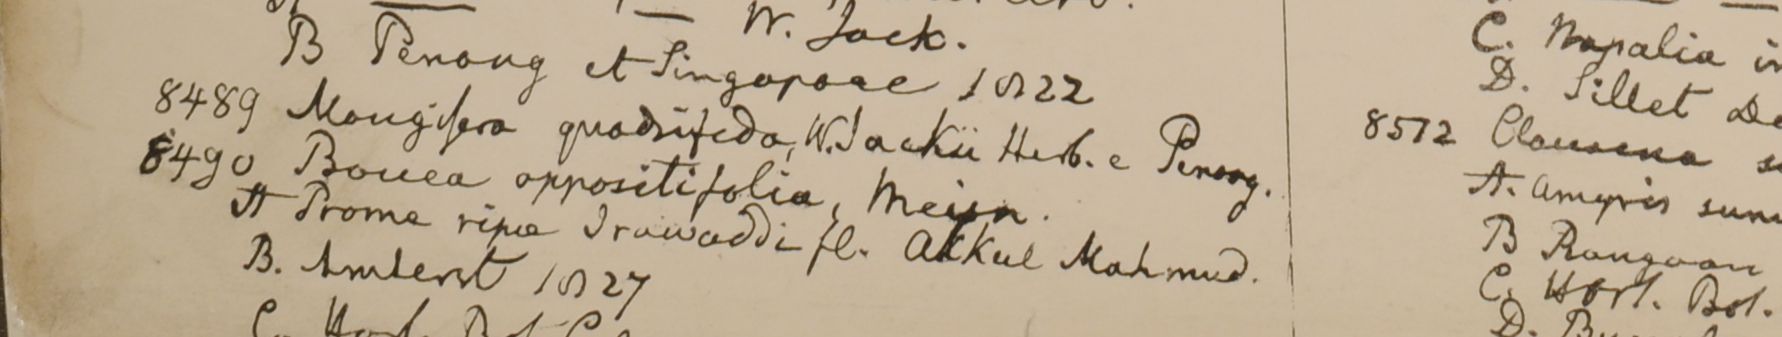 W. Jack.
B Penang et Singapore 1822
8489 Mangifera quadrifida, W. Jackii Herb. e Penang.
8490 Bouea oppositifolia, Meisn.
A Prome ripæ Irawaddi fl. Akkul Mahmud.
B. Amherst 1827
C. Hort. Bot.
C. Napalia
D. Sillet
8512 Clausena
A. Amyris
B Rangoon
C. Hort. Bot.
D.